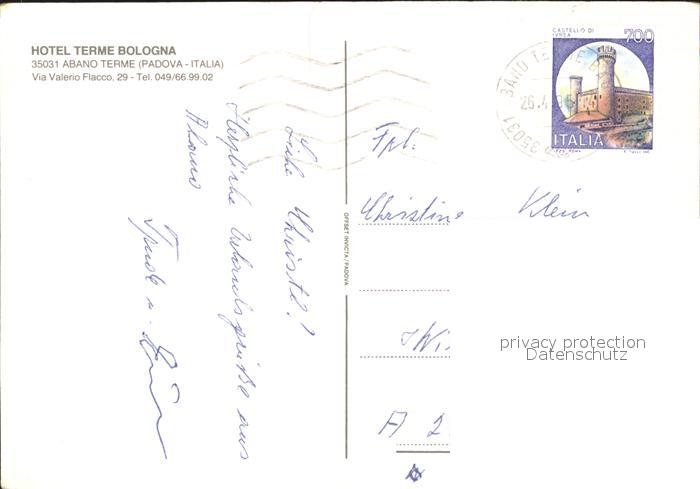 HOTEL TERME BOLOGNA
35031 ABANO TERME (PADOVA - ITALIA)
Via Valerio Flacco, 29 - Tel. 049/66.99.02
Liebe Christl!
Herzliche Urlaubsgrüße aus
Abano
OFFSET INVICTA / PADOVA
CASTELLO DI
IVREA
700
ITALIA
35031
26.4
Frl.
Christine Klein
Wi
A 2
privacy protection
Datenschutz